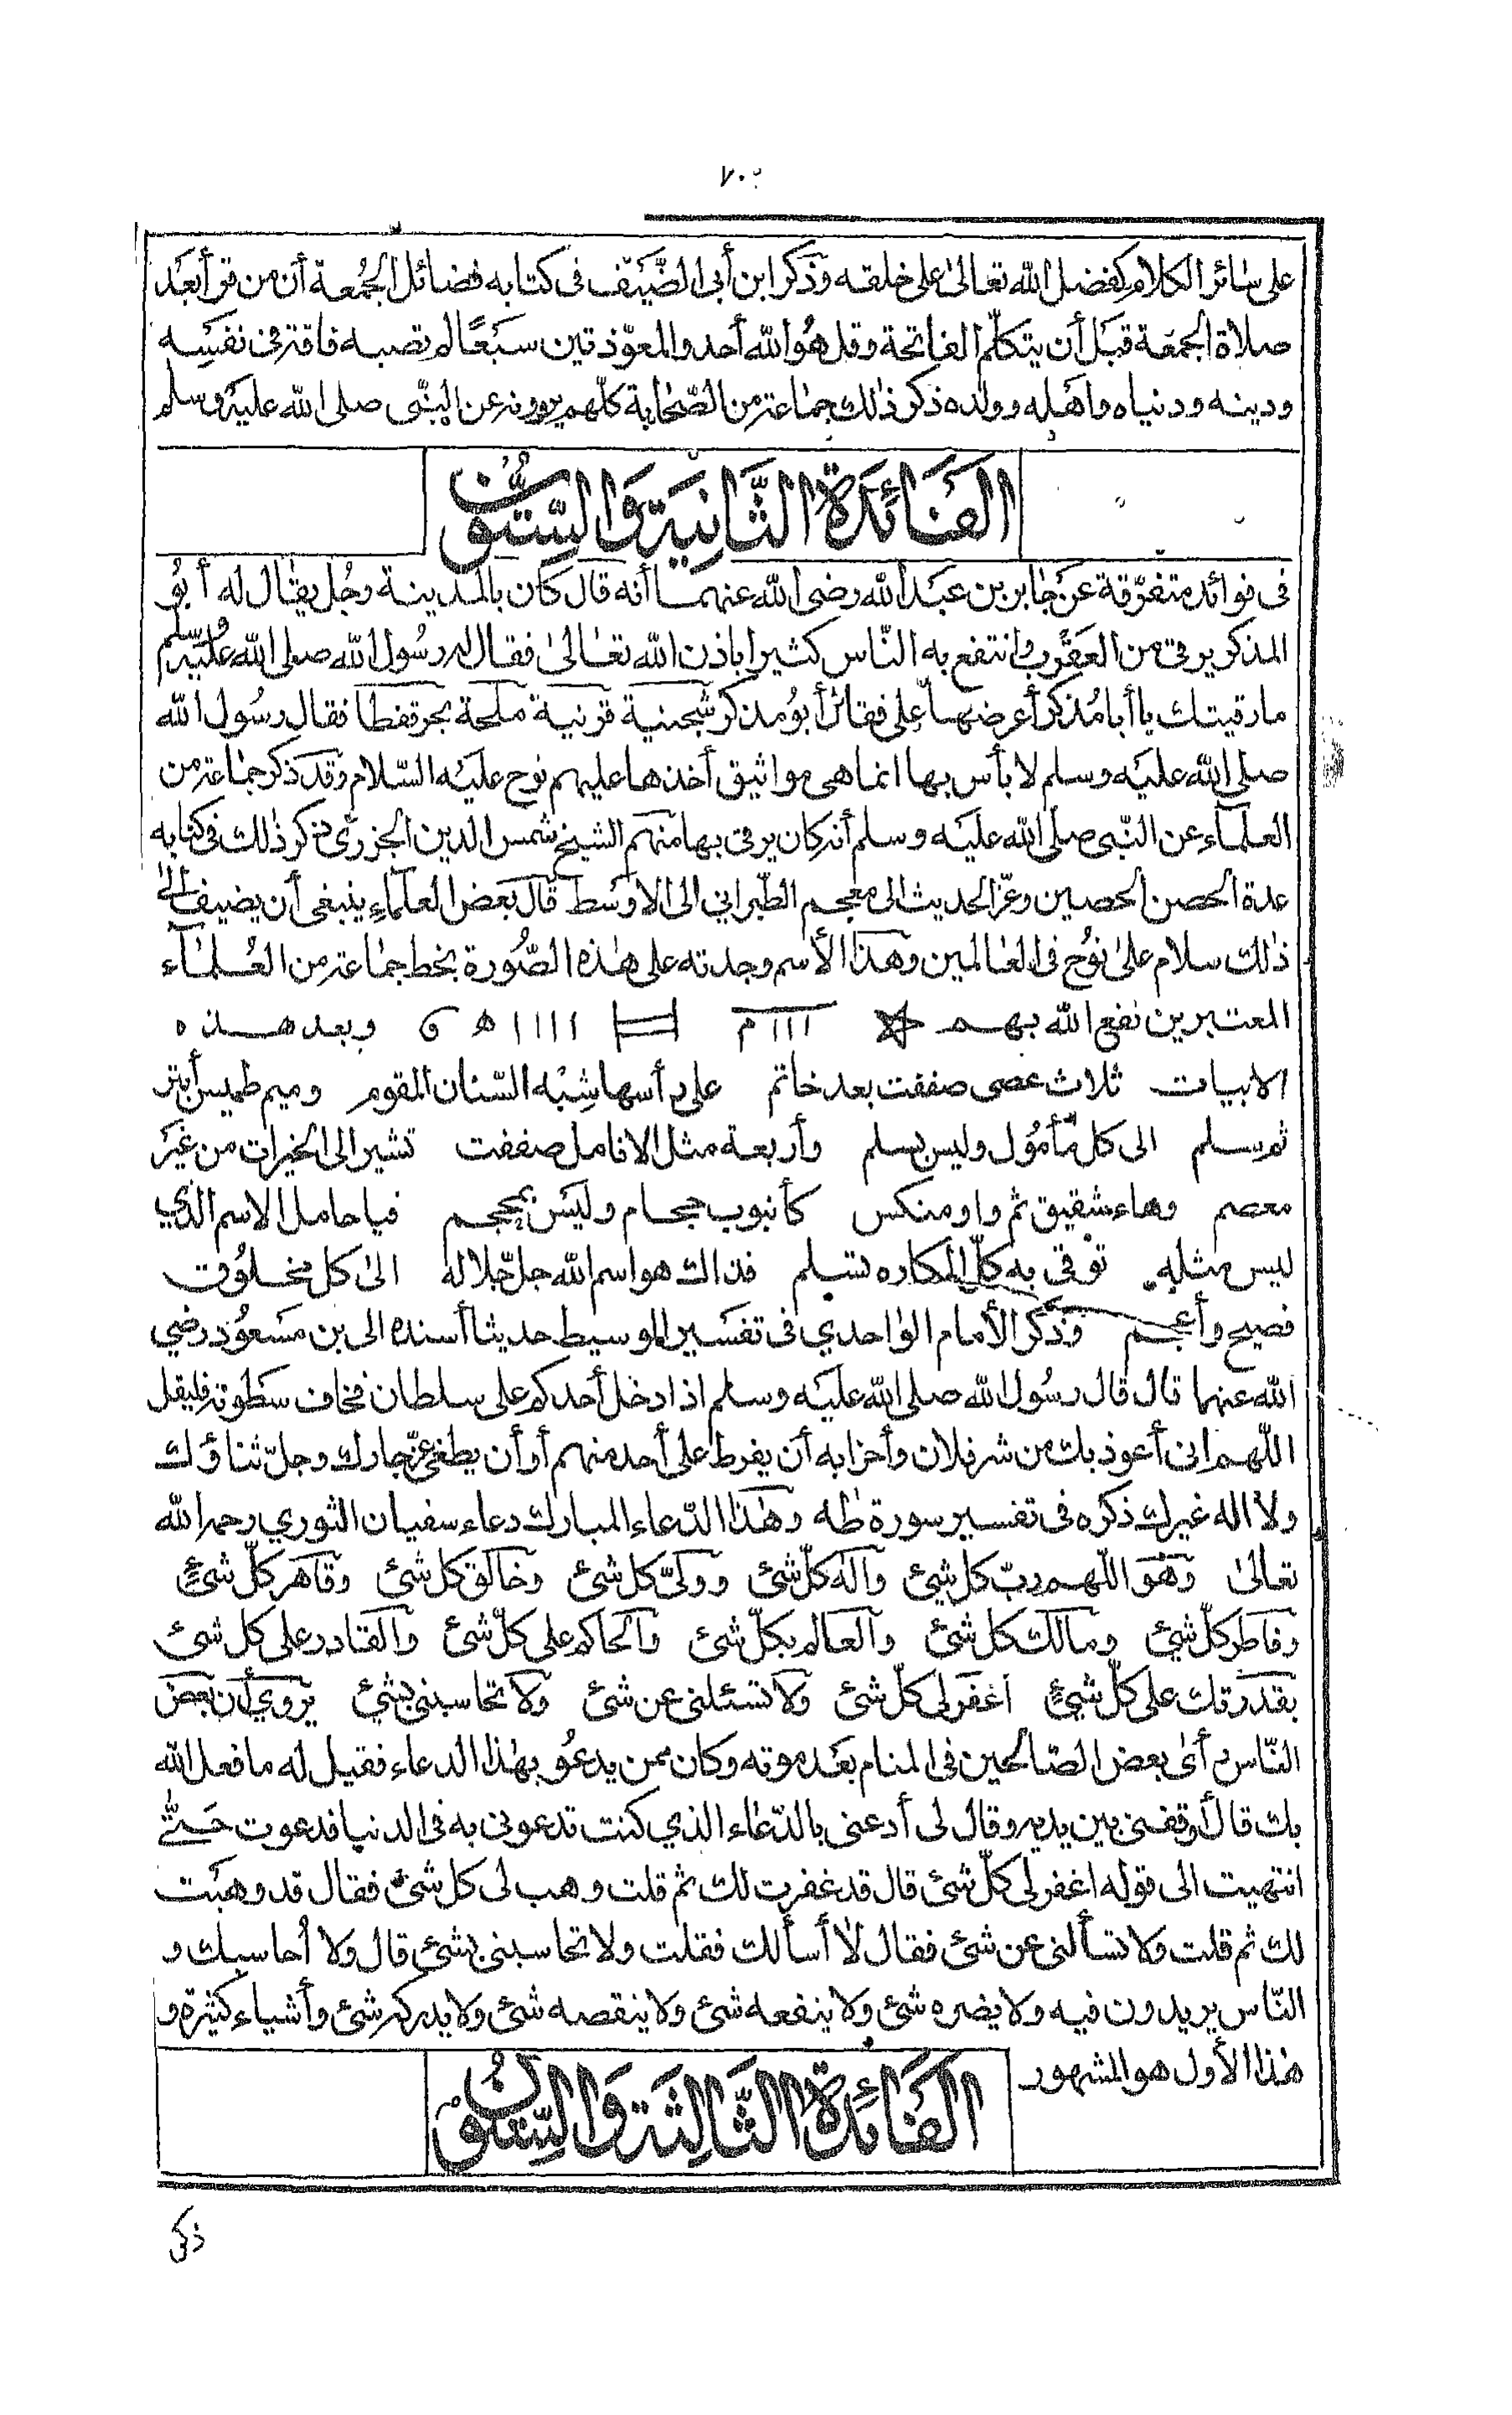 ٧٠
على سائر الكلام كفضل الله تعالى على خلقه وذكر ابن أبى الضّيّف فى كتابه فضائل الجمُعة أن من قرأ بعد
صلاة الجمعة قبل أن يتكلّم الفاتحة وقل هُو الله أحد والمعوّذتين سبعًا لم تصبه فاقة فى نفسه
ودينه ودنياه واهله وولده ذكر ذلك جماعة من الصّحابة كلّهم يروونه عن النبّى صلى الله عليه وسلم
الفَائدَة الثَّانِيَة وَالسِّتُّون
فى فوائد متفرّقة عن جابر بن عبد الله رضى الله عنهما أنه قال كان بالمدينة رجُل يقال له أبُو
المذكر يرقى من العقرب وانتفع به النّاس كثيرا باذن الله تعالى فقال له رسُول الله صلى الله عليه وسلم
ما رقيتك يا أبا مُذكر أعرضها علي فقال أبُو مذكر شجنية قرنية ملحة بحر قفطا فقال رسُول الله
صلى الله عليه وسلم لا بأس بها انما هى مواثيق أخذها عليهم نوح عليه السّلام وقد ذكر جماعة من
العلماء عن النّبى صلى الله عليه وسلم أنه كان يرقى بها منهم الشيخ شمس الدين الجزرى ذكر ذلك فى كتابه
عدة الحصن الحصين وعزّ الحديث الى معجم الطّبرانى الى الاوسط قال بعض العلماء ينبغى أن يضيف الى
ذلك سلام على نوُح فى العالمين وهذا الأسم وجدته على هذه الصُّورة بخط جماعة من العُلماء
المعتبرين نفع الله بهم ااا م اااا ھ و وبعد هذه
الابيات ثلاث عصى صففت بعد خاتم على رأسها شبْه السّنان المقوم وميم طميس أبتر
ثم سلم الى كل مأمُول وليس بسلم وأربعة مثل الانامل صففت تشير الى الخيرات من غير
معصم وهاء شقيق ثم واو منكس كأنبوب حجام وليس بمحجم فيا حامل الاسم الذي
ليس مثله توقى به كلّ المكاره تسلم فذاك هو اسم الله جل جلاله الى كل مخلُوق
فصيح وأعجم وذكر الأمام الواحدي فى تفسير الوسيط حديثا أسنده الى بن مسعُود رضي
الله عنهما قال قال رسُول الله صلى الله عليه وسلم اذا دخل أحدكم على سلطان فخاف سطوته فليقل
اللّهم انى أعوذ بك من شر فلان وأحزابه أن يفرط على أحد منهم أو أن يطغى عزّ جارك وجلّ ثناؤك
ولا اله غيرك ذكره فى تفسير سورة طه وهذا الدّعاء المبارك دعاء سفيان الثوري رحمه الله
تعالى وهو اللّهم ربّ كل شيئ واله كلّ شئ وولىّ كل شئ وخالق كل شئ وقاهر كلّ شئ
وفاطر كلّ شيئ ومالك كل شئ والعالم بكلّ شئ والحاكم على كلّ شئ والقادر على كل شئ
بقدرتك على كلّ شيئ اغفر لى كلّ شئ ولا تسئلنى عن شئ ولا تحاسبنى بشئ يروي أن بعض
النّاس رأى بعض الصّالحين فى المنام بعد موته وكان ممن يدعُو بهذا الدعاء فقيل له ما فعل الله
بك قال أوقفنى بين يديه وقال لى أدعنى بالدّعاء الذي كنت تدعونى به فى الدنيا فدعوت حتّى
انتهيت الى قوله اغفر لى كلّ شئ قال قد غفرت لك ثم قلت وهب لى كل شئ فقال قد وهبت
لك ثم قلت ولا تسألنى عن شئ فقال لا أسألك فقلت ولا تحاسبنى بشئ قال ولا أحاسبك و
النّاس يريدون فيه ولا يضره شئ ولا ينفعه شئ ولا ينقصه شئ ولا يدركه شئ وأشياء كثيرة و
هذا الأول هو المشهور
الفَائدَة الثَّالِثَة وَالسِّتّون
ذكر